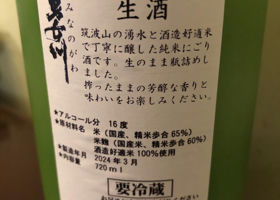 男女川
みなのがわ
生酒
筑波山の湧水と酒造好適米
で丁寧に醸した純米にごり
酒です。生のまま瓶詰めし
ました。
搾ったままの芳醇な香りと
味わいをお楽しみください。
★アルコール分 16度
★原材料名 米（国産、精米歩合65%）
米麹（国産、精米歩合60%）
酒造好適米100%使用
★製造年月 2024年3月
★内容量 720ml
要冷蔵